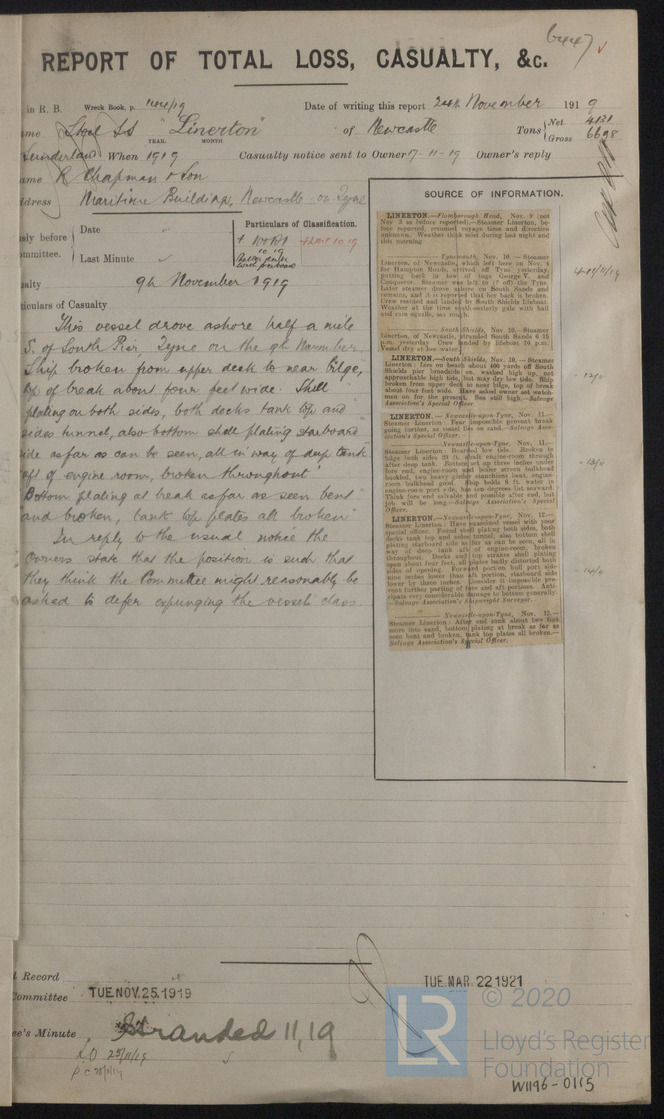 6447
REPORT OF TOTAL LOSS, CASUALTY, &c.
in R. B. Wreck Book, p. 1919 Date of writing this report 24th November 1919
Steel SS "Linerton" of Newcastle Tons Net 4121 Gross 6698
YEAR. MONTH
Sunderland When 1919 Casualty notice sent to Owner 17-11-19 Owner's reply
R Chapman & Son
dress Maritime Buildings, Newcastle on Tyne
SOURCE OF INFORMATION.
sly before
mmittee.
Date
Last Minute
Particulars of Classification.
alty 9th November 1919
iculars of Casualty
This vessel drove ashore half a mile
S. of South Pier, Tyne on the 9th November
Ship broken from upper deck to near bilge,
top of break about four feet wide. Shell
plating on both sides, both decks tank top and
sides tunnel, also bottom shell plating starboard
side as far as can be seen, all in way of deep tank
aft of engine room, broken throughout
Bottom plating at break as far as seen bent
and broken, tank top plates all broken
In reply to the usual notice the
Owners state that the position is such that
they think the Committee might reasonably be
asked to defer expunging the vessel's class.
LINERTON.—Flamborough Head, Nov. 9 (not
Nov. 8 as before reported).—Steamer Linerton, be-
fore reported, resumed voyage time and direction
unknown. Weather thick mist during last night and
this morning
Tynemouth, Nov. 10.—Steamer
Linerton, of Newcastle, which left here on Nov. 8
for Hampton Roads, arrived off Tyne yesterday,
putting back in tow of tugs George V. and
Conqueror. Steamer was left to (? off) the Tyne
Later steamer drove ashore on South Sands and
remains, and it is reported that her back is broken.
Crew rescued and landed by South Shields lifeboat
Weather at the time south-easterly gale with hail
and rain squalls, sea rough.
South Shields, Nov. 10.—Steamer
Linerton, of Newcastle, stranded South Sands 6 15
p.m. yesterday Crew landed by lifeboat 10 p.m.
Vessel dry at low water.
LINERTON.—South Shields, Nov. 10.—Steamer
Linerton: Lies on beach about 400 yards off South
Shields pier broadside on, washed high up, not
approachable high tide, but may dry low tide. Ship
broken from upper deck to near bilge, top of break
about four feet wide. Have asked owner set watch-
men on for the present. Sea still high.—Salvage
Association's Special Officer.
LINERTON.—Newcastle-upon-Tyne, Nov. 11.—
Steamer Linerton: Fear impossible prevent break
going further, as vessel lies on sand.—Salvage Asso-
ciation's Special Officer.
Newcastle-upon-Tyne, Nov. 11.—
Steamer Linerton: Boarded low tide. Broken to
bilge both sides abaft engine-room through
after deep tank. Bottom set up three inches under
fore end, engine-room and boiler screen bulkhead
buckled, two heavy girder stanchions bent, engine-
room bulkhead good. Ship holds 8 ft. water in
engine-room port side, has ten degrees list seaward.
Think fore end salvable and possible after end, but
job will be long.—Salvage Association's Special
Officer.
LINERTON.—Newcastle-upon-Tyne, Nov. 12.—
Steamer Linerton: Have examined vessel with your
special officer. Found shell plating both sides, both
decks tank top and sides tunnel, also bottom shell
plating starboard side as far as can be seen, all in
way of deep tank aft of engine-room, broken
throughout. Decks and top strakes shell plating
open about four feet, all plates badly distorted both
sides of opening. Forward portion hull port side
nine inches lower than aft portion, starboard side
lower by three inches. Consider it impossible pre-
vent further parting of fore and aft portions. Anti-
cipate very considerable damage to bottom generally.
—Salvage Association's Shipwright Surveyor.
Newcastle-upon-Tyne, Nov. 12.—
Steamer Linerton: After end sunk about two feet
more into sand, bottom plating at break as far as
seen bent and broken, tank top plates all broken.—
Salvage Association's Special Officer.
Record
Committee TUE NOV. 25. 1919
TUE. MAR. 22 1921
ee's Minute Stranded 11,19
25/11/19
LR
© 2020
Lloyd's Register
Foundation
W1196-0115